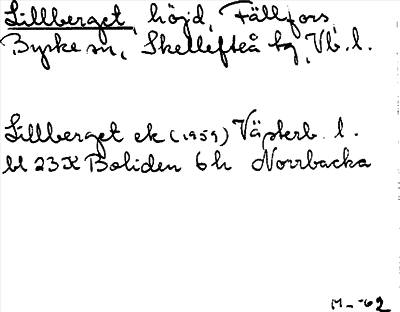 Lillberget, höjd, Fällfors,
Byske sn, Skellefteå tg, Vb. l.
Lillberget ek (1959) Västerb. l.
bl 23K Boliden 6h Norrbacka
M--62